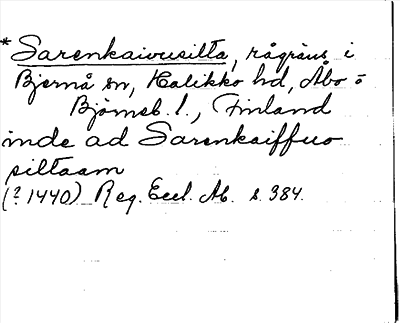 *Sarenkaivusilta, rågräns i
Bjernå sn, Halikko hd, Åbo o
Björneb. l., Finland
inde ad Sarenkaiffuo
siltaam
(? 1440) Reg. Eccl. Ab. s. 384.